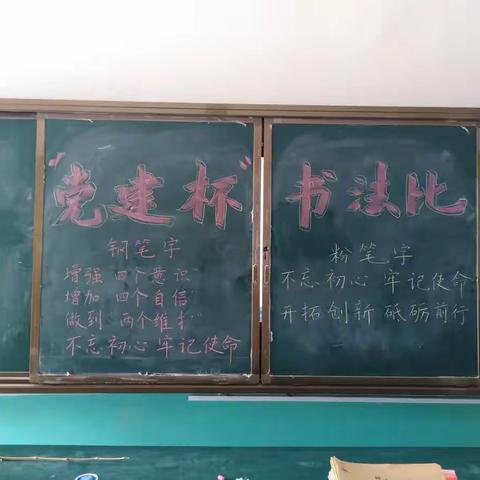 "党建杯"书法比
钢笔字
增强"四个意识"
增加"四个自信"
做到"两个维护"
不忘初心 牢记使命
粉笔字
不忘初心 牢记使命
开拓创新 砥砺前行